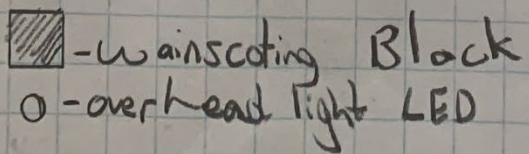 -Wainscoting Black
O -overhead light LED